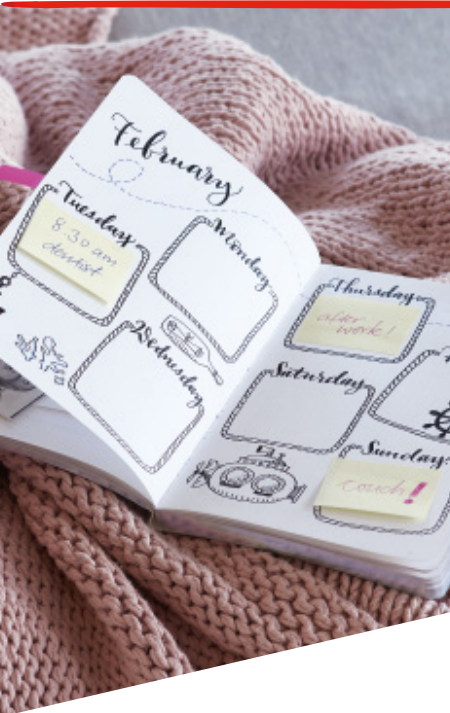 February
Tuesday
8.30 am
dentist
Monday
Wednesday
Thursday
after
work!
Saturday
Sunday
couch!